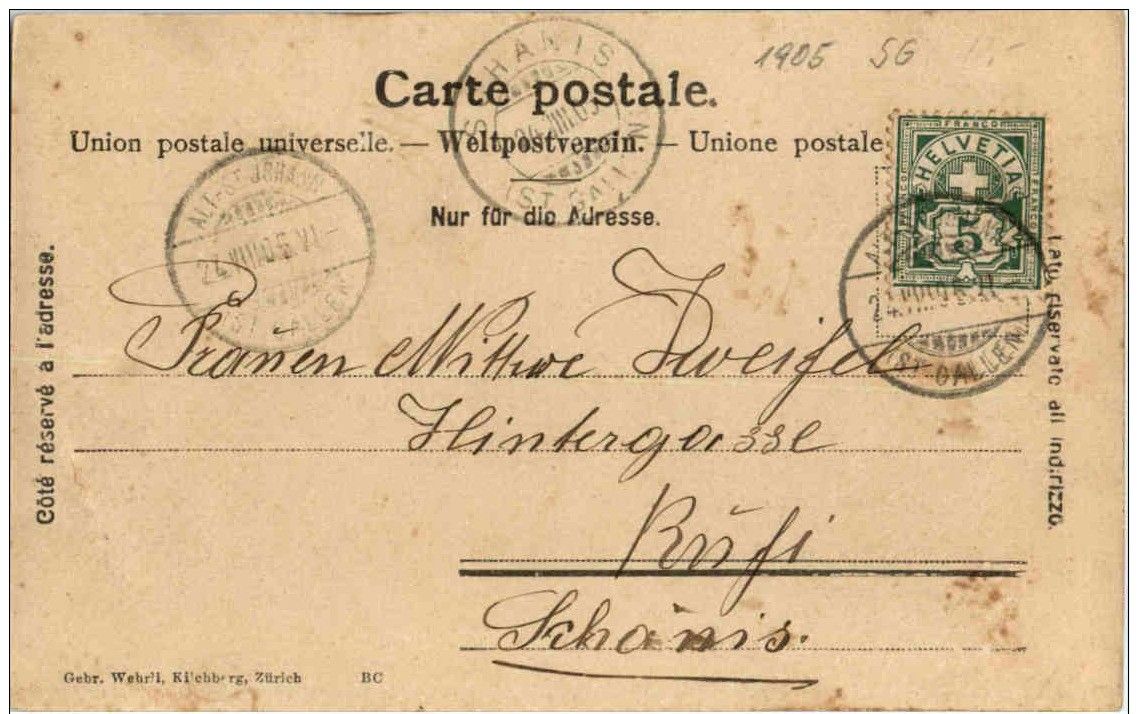 1905 SG
Carte postale.
Union postale universelle. — Weltpostverein. — Unione postale
Nur für die Adresse.
Côté réservé a l'adresse.
Lato riservato all indirizzo.
SCHÄNIS
(ST. GALLEN)
ALT-ST. JOHANN
24.VIII.05.VI-
(ST. GALLEN)
FRANCO
HELVETIA
5
24.VIII.05.VI
(ST. GALLEN)
Frauen Wittwe Zweifel
Hintergasse
Rufi
Schänis.
Gebr. Wehrli, Kilchberg, Zürich BC